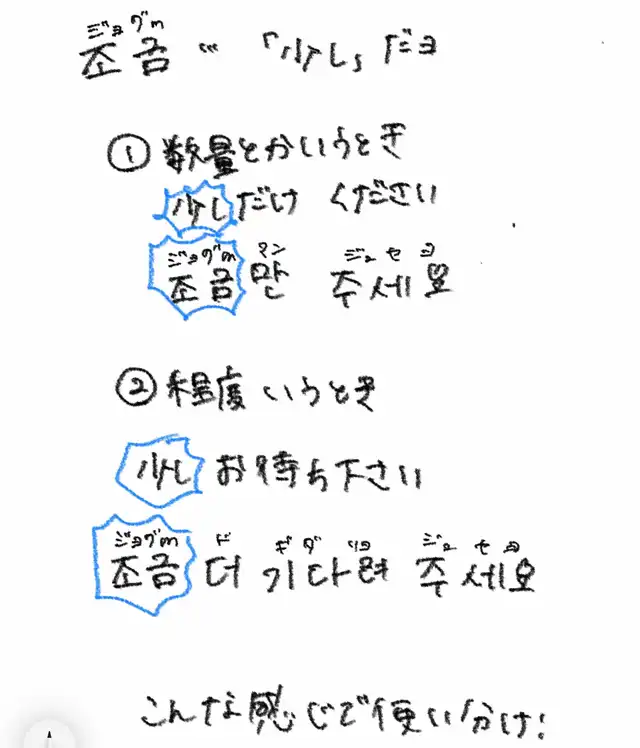 ジョグm
조금 … 「少し」だョ
① 数量とかいうとき
少しだけ ください
ジョグm マン ジュセヨ
조금만 주세요
② 程度いうとき
少し お待ち下さい
ジョグm ド ギダリョ ジュセヨ
조금 더 기다려 주세요
こんな感じで使い分け!